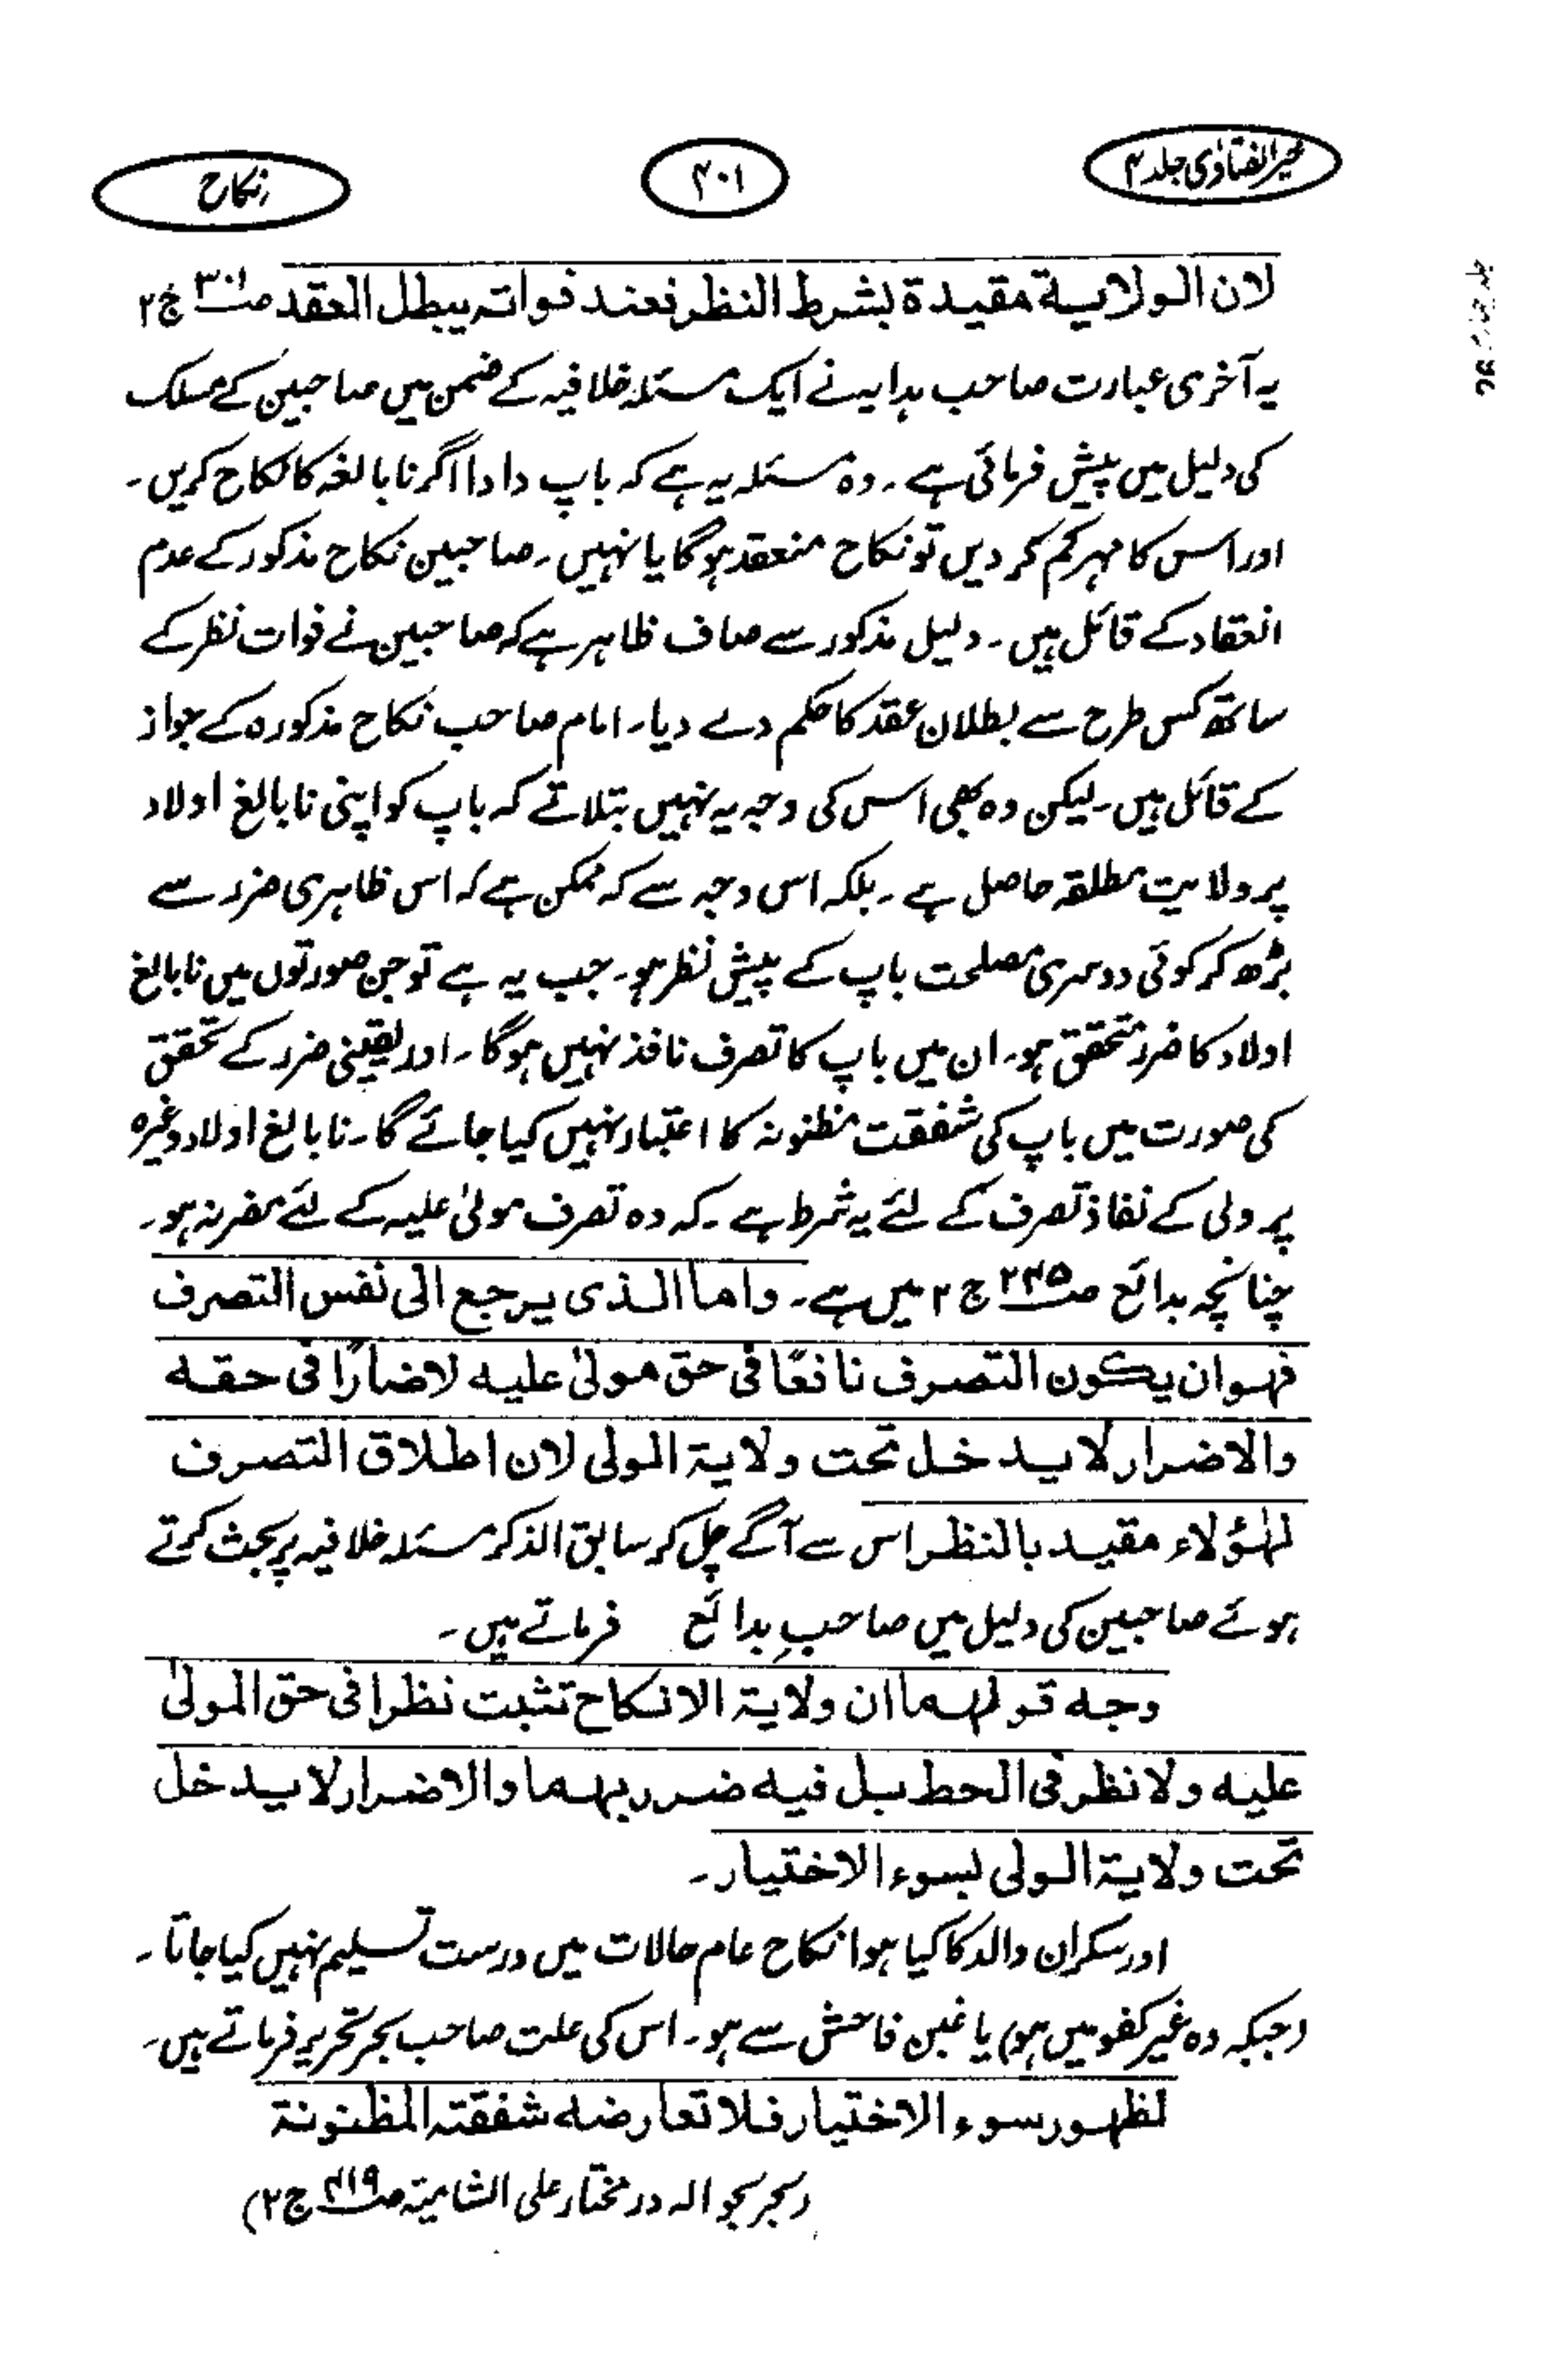 خیر الفتاویٰ جلد ۴
۴۰۱
نکاح
لان الولایة مقیدة بشرط النظر فعند فواتہ یبطل العقد صـ۳۰۱ ج ۲
یہ آخری عبارت صاحب ہدایہ نے ایک مسئلہ خلافیہ کے ضمن میں صاحبین کے مسلک
کی دلیل میں پیش فرمائی ہے ۔ وہ مسئلہ یہ ہے کہ باپ دادا اگر نابالغہ کا نکاح کریں ۔
اور اس کا مہر کم کر دیں تو نکاح منعقد ہوگا یا نہیں ۔ صاحبین نکاح مذکور کے عدم
انعقاد کے قائل ہیں ۔ دلیل مذکور سے صاف ظاہر ہے کہ صاحبین نے فوات نظر کے
ساتھ کس طرح سے بطلان عقد کا حکم دے دیا ۔ امام صاحب نکاح مذکورہ کے جواز
کے قائل ہیں ۔ لیکن وہ بھی اس کی وجہ یہ نہیں بتلاتے کہ باپ کو اپنی نابالغ اولاد
پر ولایت مطلقہ حاصل ہے ۔ بلکہ اس وجہ سے کہ ممکن ہے کہ اس ظاہری ضرر سے
بڑھ کر کوئی دوسری مصلحت باپ کے پیش نظر ہو ۔ جب یہ ہے تو جن صورتوں میں نابالغ
اولاد کا ضرر متحقق ہو ۔ ان میں باپ کا تصرف نافذ نہیں ہوگا ۔ اور یقینی ضرر کے تحقق
کی صورت میں باپ کی شفقت مظنونہ کا اعتبار نہیں کیا جائے گا ۔ نابالغ اولاد وغیرہ
پر ولی کے نفاذ تصرف کے لئے یہ شرط ہے ۔ کہ وہ تصرف مولیٰ علیہ کے لئے مضر نہ ہو ۔
چنانچہ بدائع صـ۲۴۵ ج ۲ میں ہے ۔ واما الذی یرجع الی نفس التصرف
فہو ان یکون التصرف نافعًا فی حق مولیٰ علیہ لا ضارًا فی حقہ
والاضرار لا یدخل تحت ولایۃ المولی لان اطلاق التصرف
لہٰؤلاء مقید بالنظر اس سے آگے چل کر سابق الذکر مسئلہ خلافیہ پر بحث کرتے
ہوئے صاحبین کی دلیل میں صاحبِ بدائع فرماتے ہیں ۔
وجہ قولہما ان ولایۃ الانکاح تثبت نظرا فی حق المولیٰ
علیہ ولا نظر فی الحط بل فیہ ضرر بہما والاضرار لا یدخل
تحت ولایۃ الولی لسوء الاختیار ۔
اور سکران والد کا کیا ہوا نکاح عام حالات میں درست تسلیم نہیں کیا جاتا ۔
(جبکہ وہ غیر کفو میں ہو) یا غبن فاحش سے ہو ۔ اس کی علت صاحب بحر تحریر فرماتے ہیں ۔
لظہور سوء الاختیار فلا تعارضہ شفقتہ المظنونۃ
(بحر بحوالہ در مختار علی الشامیۃ صـ۴۱۹ ج ۲)